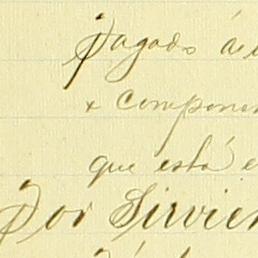 Pagado á
x componen
que está e
Por Sirvien